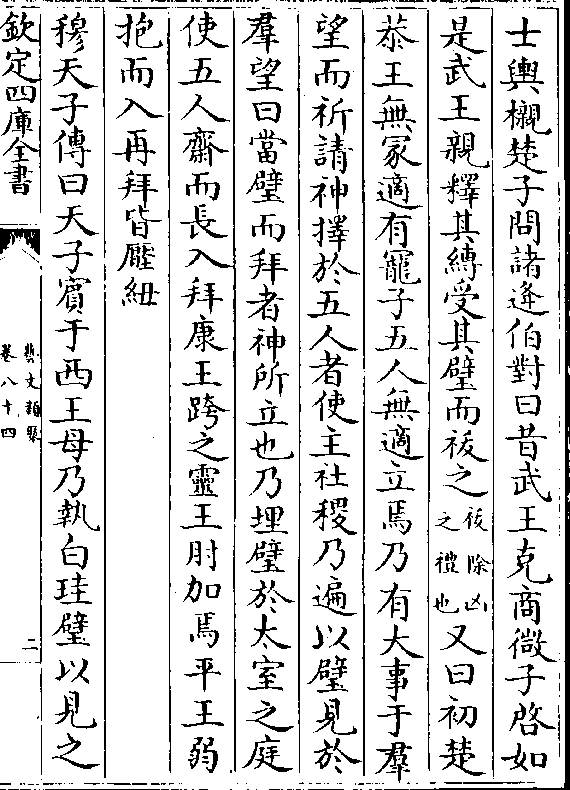 士輿櫬楚子問諸逄伯對曰昔武王克商微子啓如
是武王親釋其縛受其璧而祓之祓除凶之禮也又曰初楚
恭王無冢適有寵子五人無適立焉乃有大事于羣
望而祈請神擇於五人者使主社稷乃遍以璧見於
羣望曰當璧而拜者神所立也乃埋璧於太室之庭
使五人齋而長入拜康王跨之靈王肘加焉平王弱
抱而入再拜皆壓紐
穆天子傳曰天子賓于西王母乃執白珪璧以見之
欽定四庫全書
藝文類聚
卷八十四
二